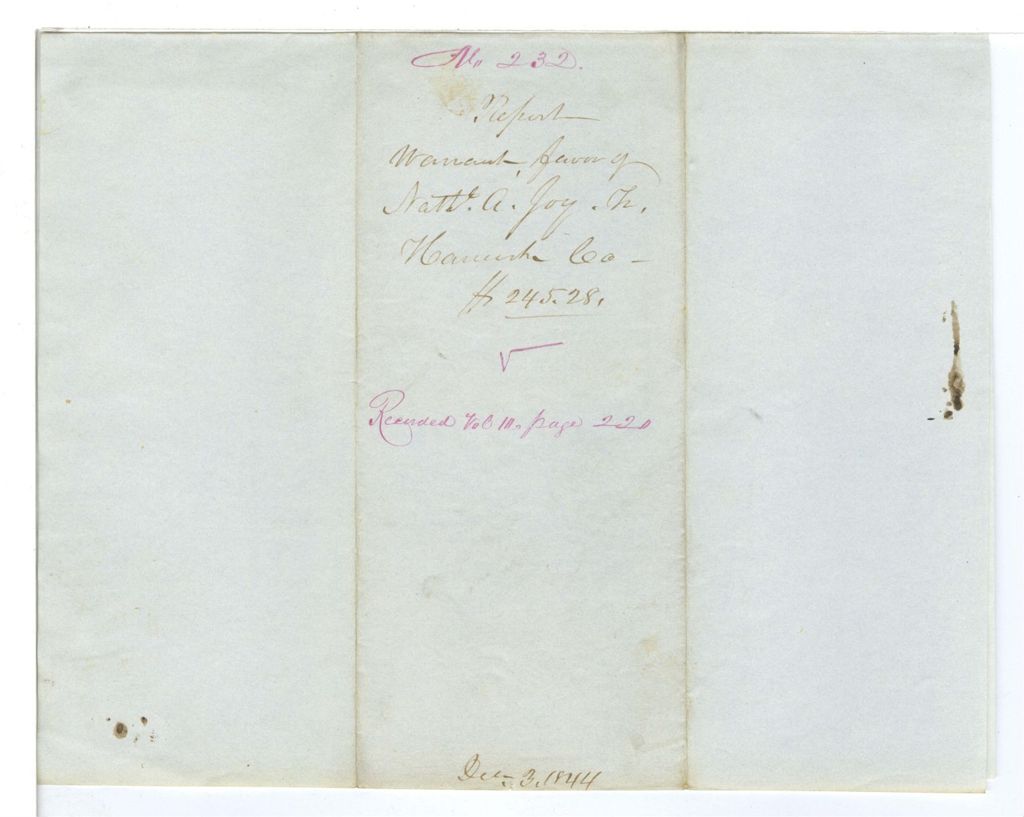 No 232.
Report
Warrant favor of
Nathl. A. Joy. Tr.
Hancock Co —
$ 245.28.
Recorded Vol 10. page 220
Dec. 3. 1844